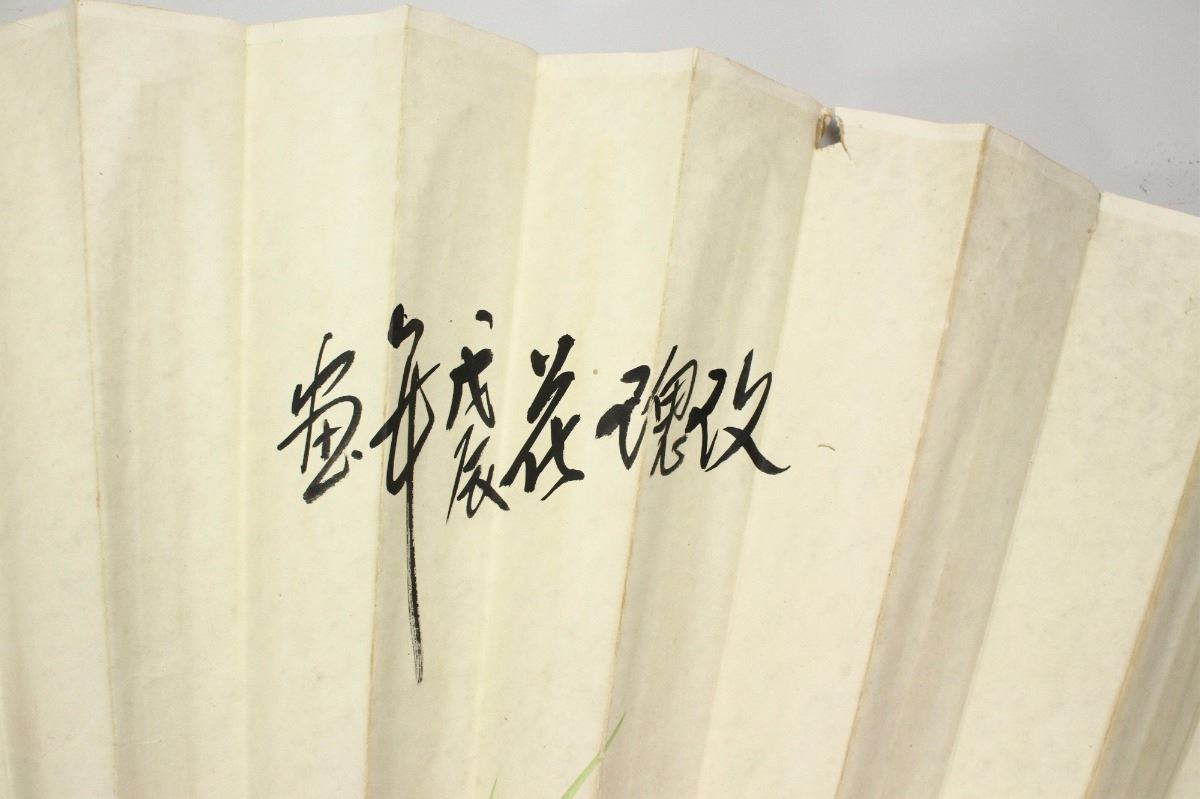 玫瑰花戊辰年畫